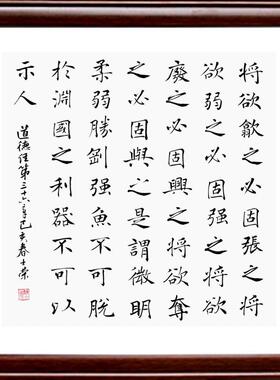 将欲歙之必固張之將
欲弱之必固强之將欲
廢之必固興之將欲奪
之必固與之是謂微明
柔弱勝剛强魚不可脫
於淵國之利器不可以
示人
道德经第三十六章己亥春士荣